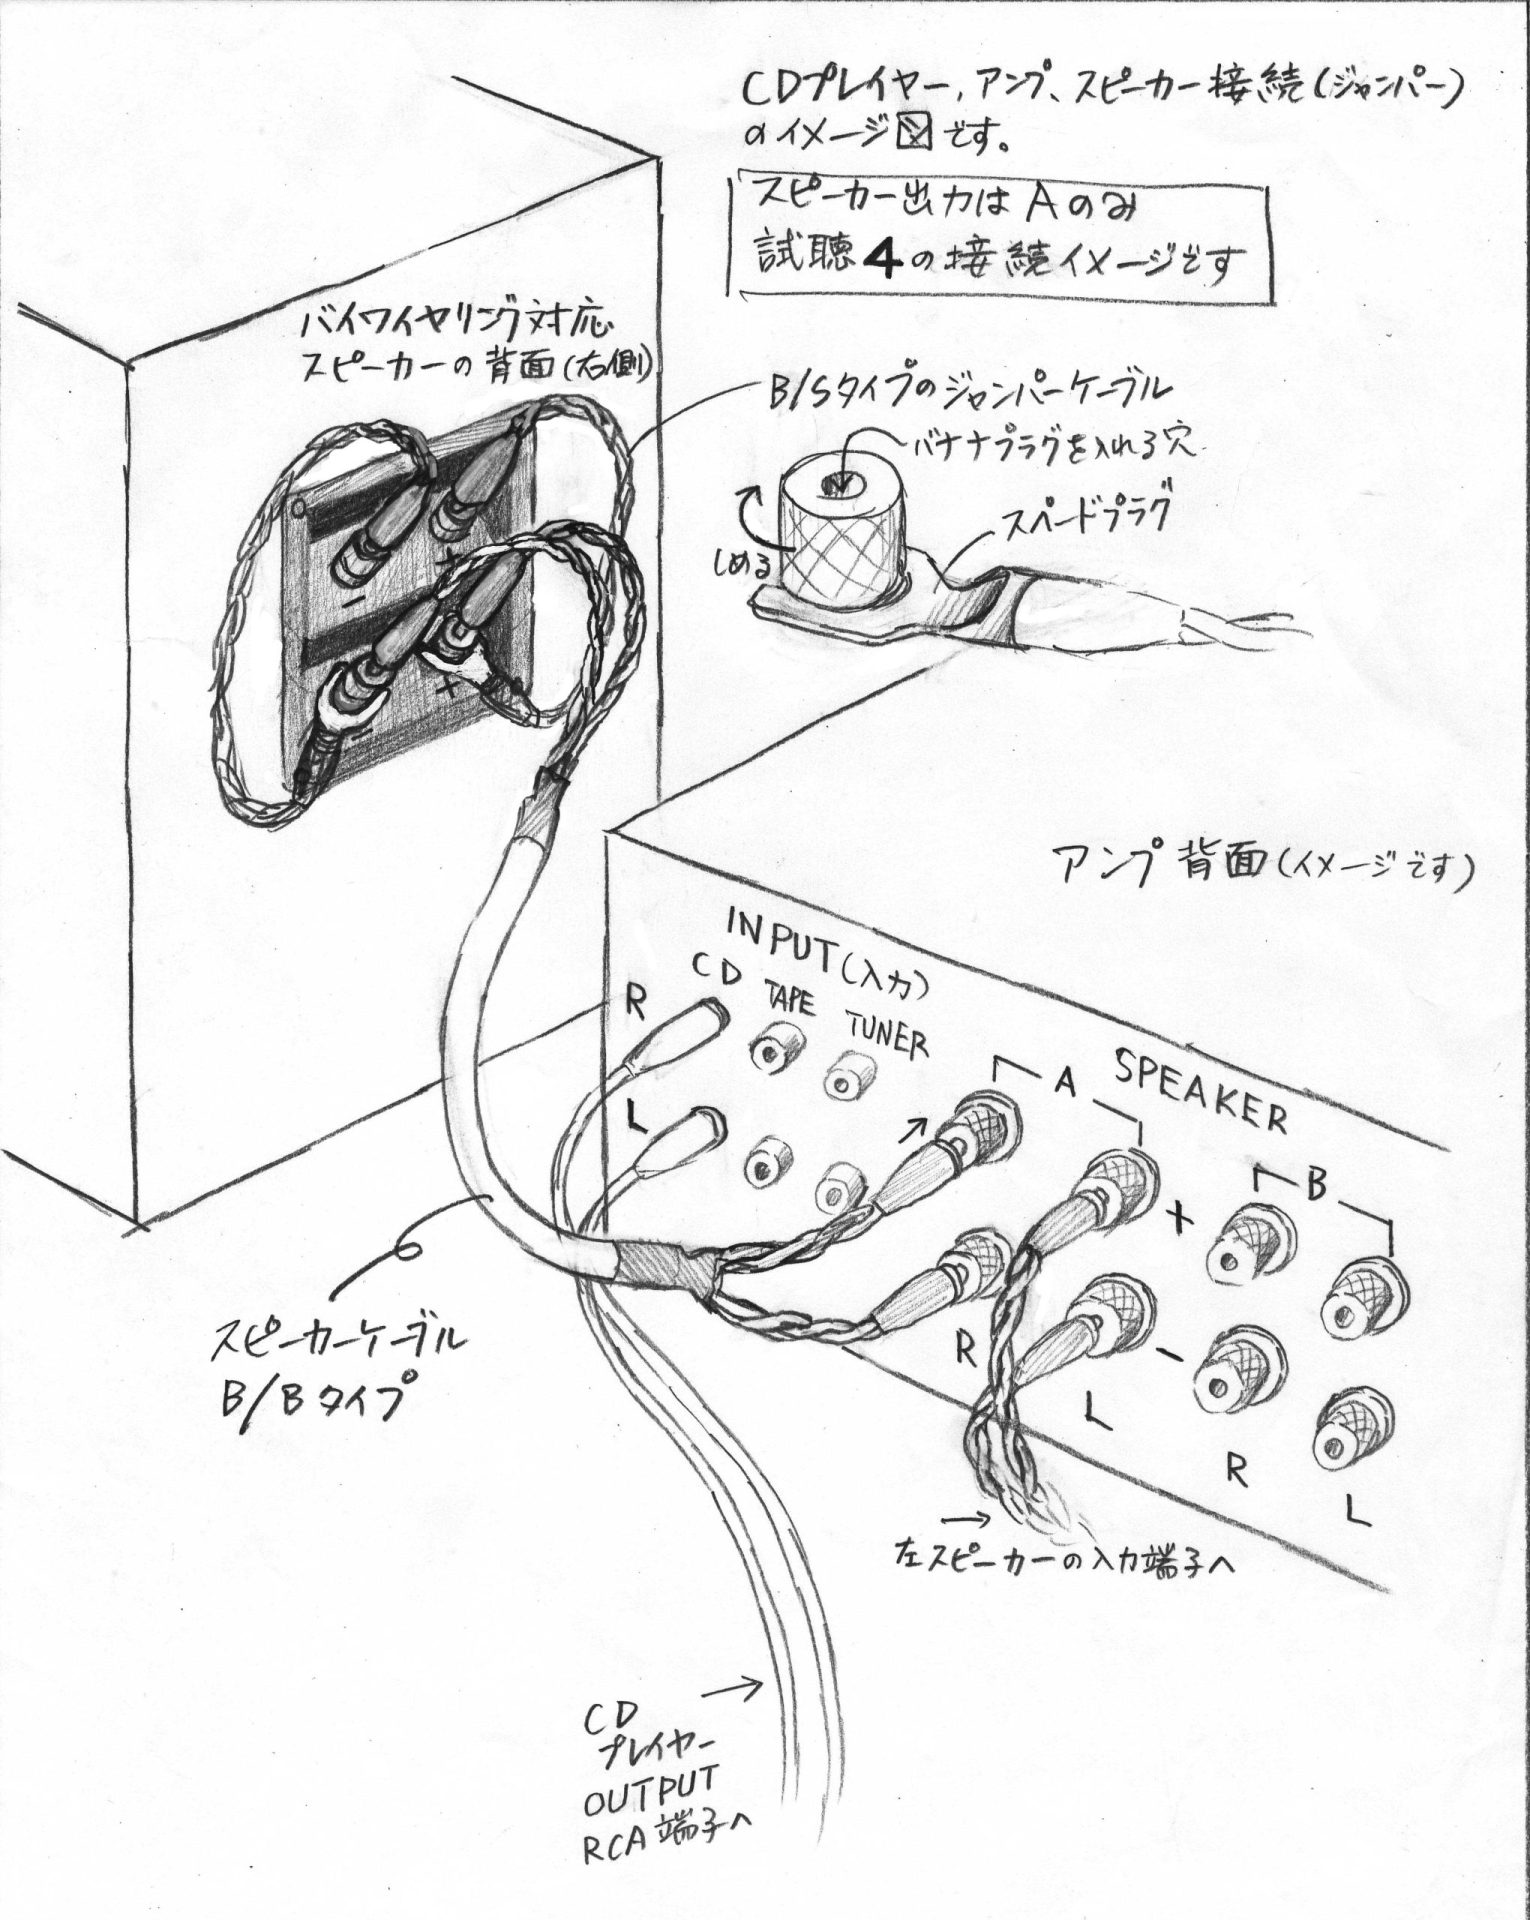 CDプレイヤー、アンプ、スピーカー接続(ジャンパー)
のイメージ図です。
スピーカー出力はAのみ
試聴4の接続イメージです
バイワイヤリング対応
スピーカーの背面(右側)
B/Sタイプのジャンパーケーブル
バナナプラグを入れる穴
スペードプラグ
しめる
+
-
+
-
アンプ背面(イメージです)
INPUT(入力)
CD TAPE TUNER
R
L
SPEAKER
A
B
+
-
R
L
R
L
スピーカーケーブル
B/Bタイプ
左スピーカーの入力端子へ
CD
プレイヤー
OUTPUT
RCA端子へ